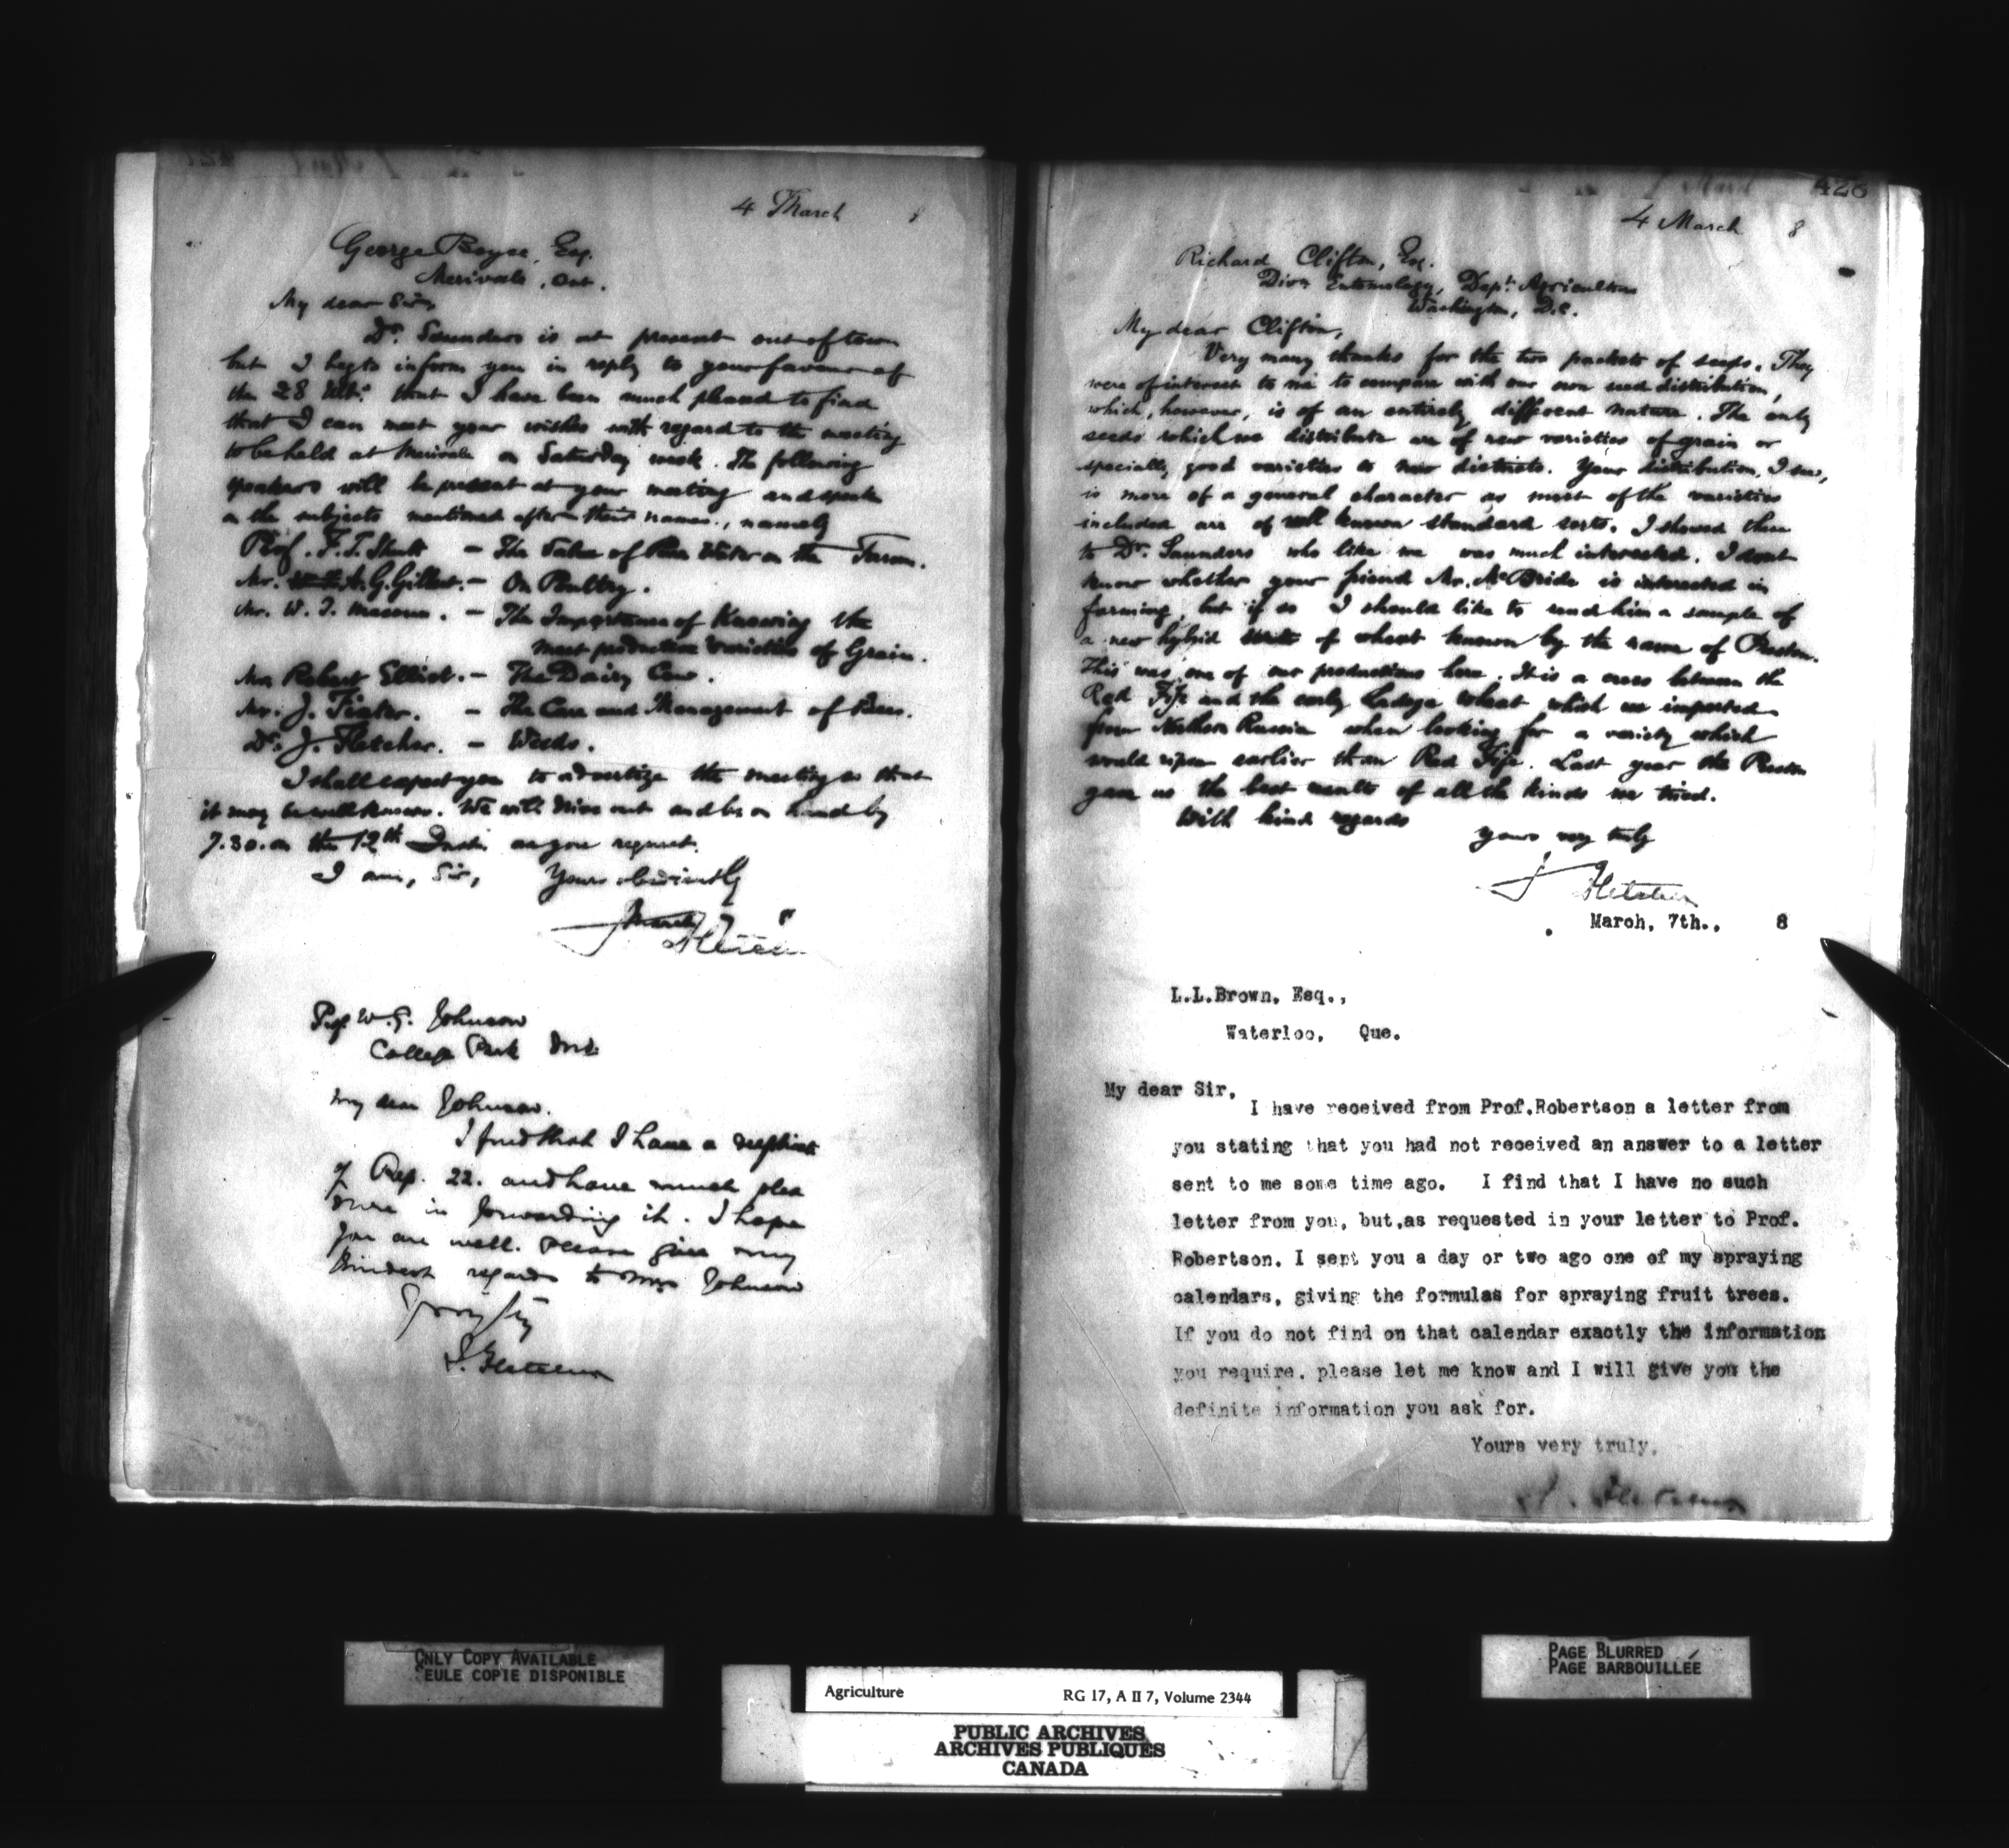 4 March 8
George Boyce, Esq.
Merivale, Ont.
My dear Sir,
Dr. Saunders is at present out of town
but I beg to inform you in reply to your favour of
the 28 Ult: that I have been much pleased to find
that I can meet your wishes with regard to the meeting
to be held at Merivale on Saturday week. The following
speakers will be present at your meeting and speak
on the subjects mentioned after their names, namely
Prof. F. T. Shutt - The Value of Pure Water on the Farm.
Mr. A. G. Gilbert. - On Poultry.
Mr. W. T. Macoun. - The Importance of Knowing the
most productive varieties of Grain.
Mr. Robert Elliot. - The Dairy Cow.
Mr. J. Fixter. - The Care and Management of Bees.
Dr. J. Fletcher. - Weeds.
I shall expect you to advertize the meeting so that
it may be well known. We will drive out and be on hand by
7.30. on the 12th Inst. as you request.
I am, Sir, Yours obediently
J Fletcher
March 7 8
Prof. W. G. Johnson
College Park Md.
My dear Johnson.
I find that I have a duplicate
of Rep. 22. and have much plea
sure in forwarding it. I hope
you are well. Please give my
kindest regards to Mrs Johnson
J. Fletcher
428
4 March 8
Richard Clifton, Esq.
Divn Entomology, Dept. Agriculture
Washington, D.C.
My dear Clifton,
Very many thanks for the two packets of seeds. They
were of interest to me to compare with our own seed distribution,
which, however, is of an entirely different nature. The only
seeds which we distribute are of new varieties of grain or
specially good varieties to new districts. Your distribution, I see,
is more of a general character as most of the varieties
included are of well known standard sorts. I showed these
to Dr. Saunders who like me was much interested. I dont
know whether your friend Mr. McBride is interested in
farming, but if so I should like to send him a sample of
a new hybrid of wheat known by the name of Preston.
This was one of our productions here. It is a cross between the
Red Fife and the early Ladoga wheat which we imported
from Northern Russia when looking for a variety which
would ripen earlier than Red Fife. Last year the Preston
gave us the best results of all the kinds we tried.
With kind regards
Yours very truly
J Fletcher
March, 7th., 8
L.L.Brown, Esq.,
Waterloo, Que.
My dear Sir,
I have received from Prof.Robertson a letter from
you stating that you had not received an answer to a letter
sent to me some time ago. I find that I have no such
letter from you, but,as requested in your letter to Prof.
Robertson, I sent you a day or two ago one of my spraying
calendars, giving the formulas for spraying fruit trees.
If you do not find on that calendar exactly the information
you require, please let me know and I will give you the
definite information you ask for.
Yours very truly,
J. Fletcher
ONLY COPY AVAILABLE
SEULE COPIE DISPONIBLE
PAGE BLURRED
PAGE BARBOUILLÉE
Agriculture RG 17, A II 7, Volume 2344
PUBLIC ARCHIVES
ARCHIVES PUBLIQUES
CANADA